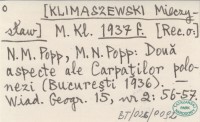 [KLIMASZEWSKI Mieczy-
sław] M. Kl. 1937 f. [Rec. o:]
N.M. Popp, M.N. Popp: Două
aspecte ale Carpaţilor polo-
nezi (Bucureşti 1936). —
Wiad. Geogr. 15, nr 2: 56-57.